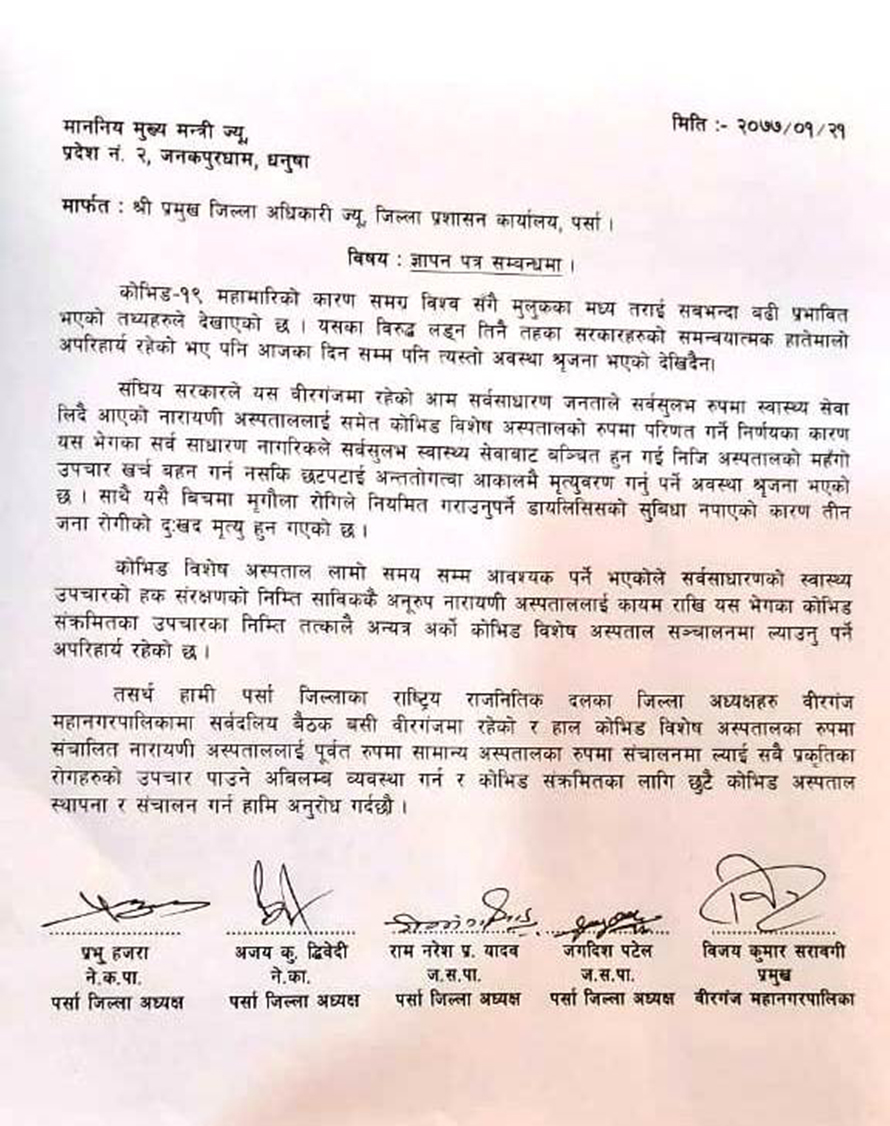 माननिय मुख्य मन्त्री ज्यू,
मिति :- २०७७/०१/२१
प्रदेश नं. २, जनकपुरधाम, धनुषा
मार्फत : श्री प्रमुख जिल्ला अधिकारी ज्यू, जिल्ला प्रशासन कार्यालय, पर्सा ।
विषय : ज्ञापन पत्र सम्बन्धमा ।
कोभिड-१९ महामारिको कारण समग्र विश्व सँगै मुलुकका मध्य तराई सबभन्दा बढी प्रभावित
भएको तथ्यहरुले देखाएको छ । यसका विरुद्ध लड्न तिनै तहका सरकारहरुको समन्वयात्मक हातेमालो
अपरिहार्य रहेको भए पनि आजका दिन सम्म पनि त्यस्तो अवस्था श्रृजना भएको देखिदैन।
संघिय सरकारले यस वीरगंजमा रहेको आम सर्वसाधारण जनताले सर्वसुलभ रुपमा स्वास्थ्य सेवा
लिदै आएको नारायणी अस्पताललाई समेत कोभिड विशेष अस्पतालको रुपमा परिणत गर्ने निर्णयका कारण
यस भेगका सर्व साधारण नागरिकले सर्वसुलभ स्वास्थ्य सेवाबाट बञ्चित हुन गई निजि अस्पतालको महँगो
उपचार खर्च बहन गर्न नसकि छटपटाई अन्ततोगत्वा आकालमै मृत्युवरण गर्नु पर्ने अवस्था श्रृजना भएको
छ । साथै यसै बिचमा मृगौला रोगिले नियमित गराउनुपर्ने डायलिसिसको सुबिधा नपाएको कारण तीन
जना रोगीको दुःखद मृत्यु हुन गएको छ ।
कोभिड विशेष अस्पताल लामो समय सम्म आवश्यक पर्ने भएकोले सर्वसाधारणको स्वास्थ्य
उपचारको हक संरक्षणको निम्ति साविककै अनूरुप नारायणी अस्पताललाई कायम राखि यस भेगका कोभिड
संक्रमितका उपचारका निम्ति तत्कालै अन्यत्र अर्को कोभिड विशेष अस्पताल सञ्चालनमा ल्याउनु पर्ने
अपरिहार्य रहेको छ ।
तसर्थ हामी पर्सा जिल्लाका राष्ट्रिय राजनितिक दलका जिल्ला अध्यक्षहरु वीरगंज
महानगरपालिकामा सर्वदलिय बैठक बसी वीरगंजमा रहेको र हाल कोभिड विशेष अस्पतालका रुपमा
संचालित नारायणी अस्पताललाई पूर्वत रुपमा सामान्य अस्पतालका रुपमा संचालनमा ल्याई सबै प्रकृतिका
रोगहरुको उपचार पाउने अबिलम्ब व्यवस्था गर्न र कोभिड संक्रमितका लागि छुटै कोभिड अस्पताल
स्थापना र संचालन गर्न हामि अनुरोध गर्दछौ ।
प्रभु हजरा अजय कु. द्विवेदी राम नरेश प्र. यादव जगदिश पटेल विजय कुमार सरावगी
ने.क.पा. ने.का. ज.स.पा. ज.स.पा. प्रमुख
पर्सा जिल्ला अध्यक्ष पर्सा जिल्ला अध्यक्ष पर्सा जिल्ला अध्यक्ष पर्सा जिल्ला अध्यक्ष वीरगंज महानगरपालिका